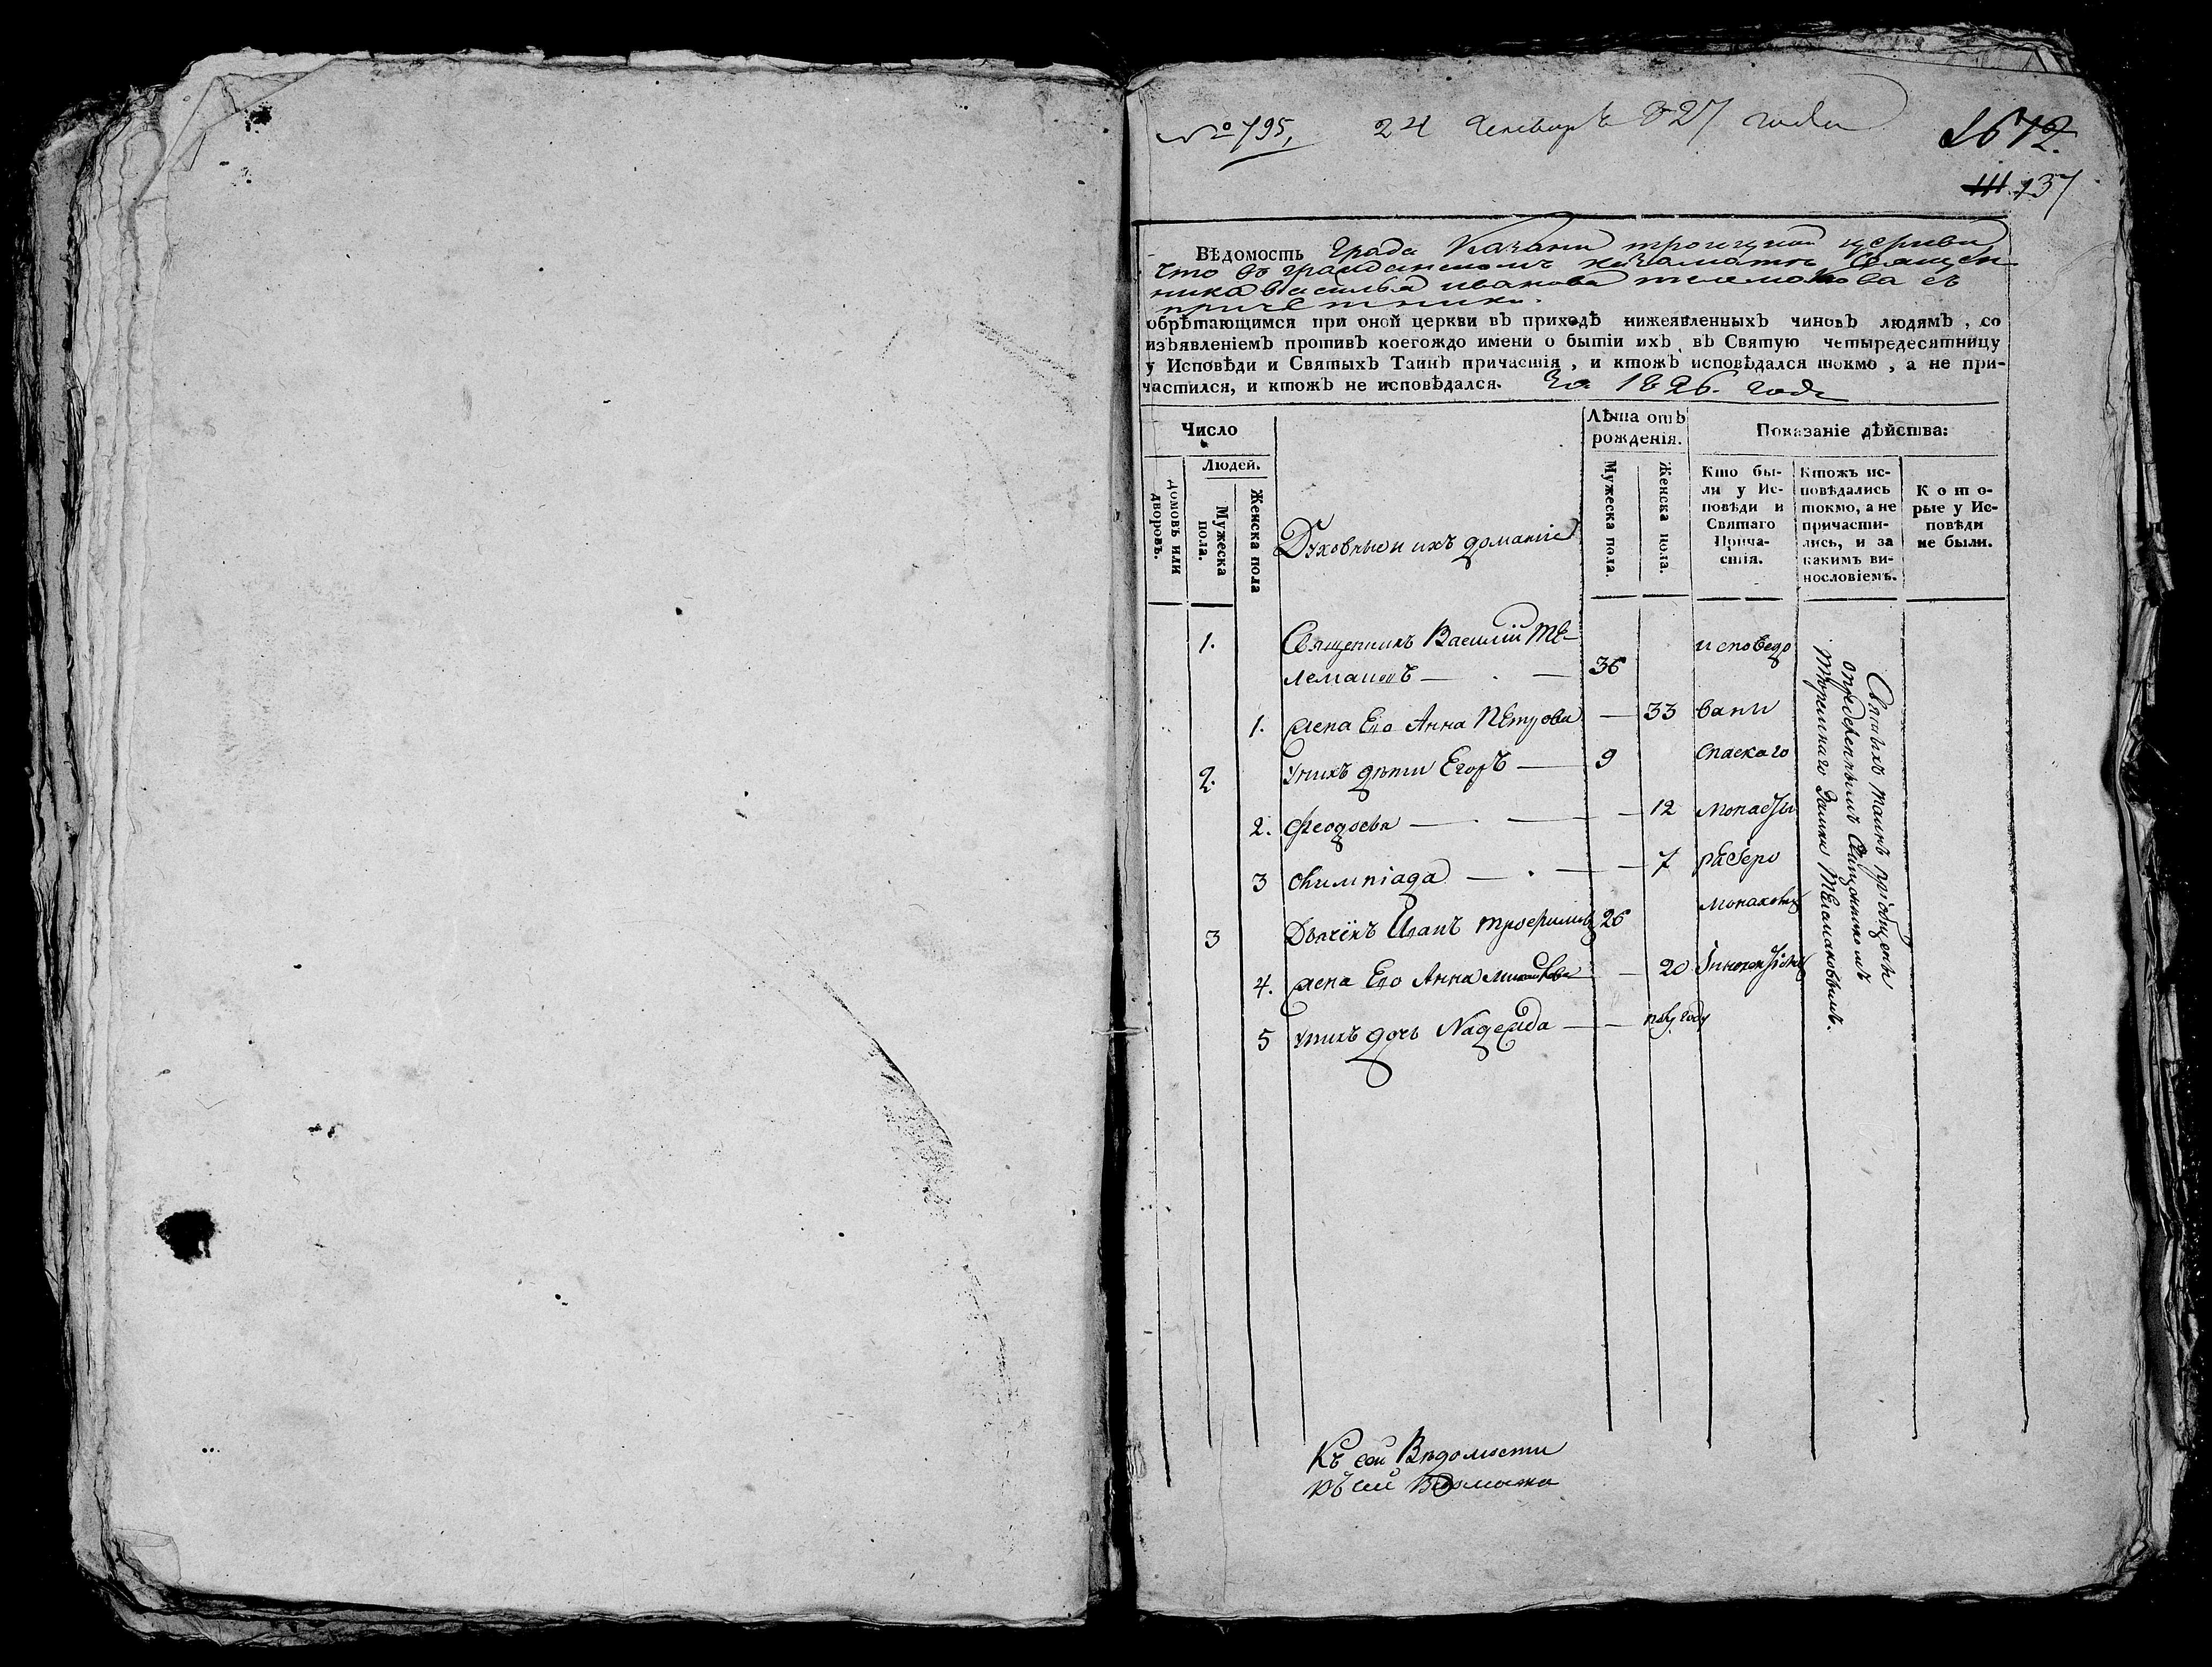 № 795, 24 Генваря 827 года 1672.
111. 137
Вѣдомость Града Казани троицкой церкви
что въ гражданскомъ казаматѣ Священ
ника Василья иванова телемакова съ
причетники.
обрѣтающимся при оной церкви въ приходѣ нижеявленныхъ чиновъ людямъ, со
изъявленіемъ противъ коегождо имени о бытіи ихъ въ Святую четыредесятницу
у Исповѣди и Святыхъ Таинъ причастія, и ктожъ исповѣдался токмо, а не при-
частился, и ктожъ не исповѣдался. За 1826. годъ
Число
Людей.
домовъ или дворовъ.
Мужеска пола.
Женска пола
Духовныи и ихъ домашніе
Лѣта отъ рожденія.
Мужеска пола.
Женска пола.
Показаніе дѣйства:
Кто бы-
ли у Ис-
повѣди и
Святаго
Прича-
стія.
Ктожъ ис-
повѣдались
токмо, а не
причасти-
лись, и за
какимъ ви-
нословіемъ.
Кото-
рые у Ис-
повѣди
не были.
1. Священникъ Василій Те-
лемаковъ — 36 исповедо
1. жена Его Анна Петрова — 33 ваны
2. Унихъ дѣти Егоръ — 9 Спаскаго
2. Феодосья — 12 Монасты
3 Олимпіада — 7 ря Іеро
3 Дьячекъ Иванъ трофимовъ 26 монахомъ
4. жена Его Анна — 20
5 унихъ дочь Надежда — полу году
Святыхъ Таинъ пріобщены
опредѣленнымъ Священникомъ
Тюремнаго Замка Телемаковымъ.
Къ сей Вѣдомости
Къ сей Ведомости